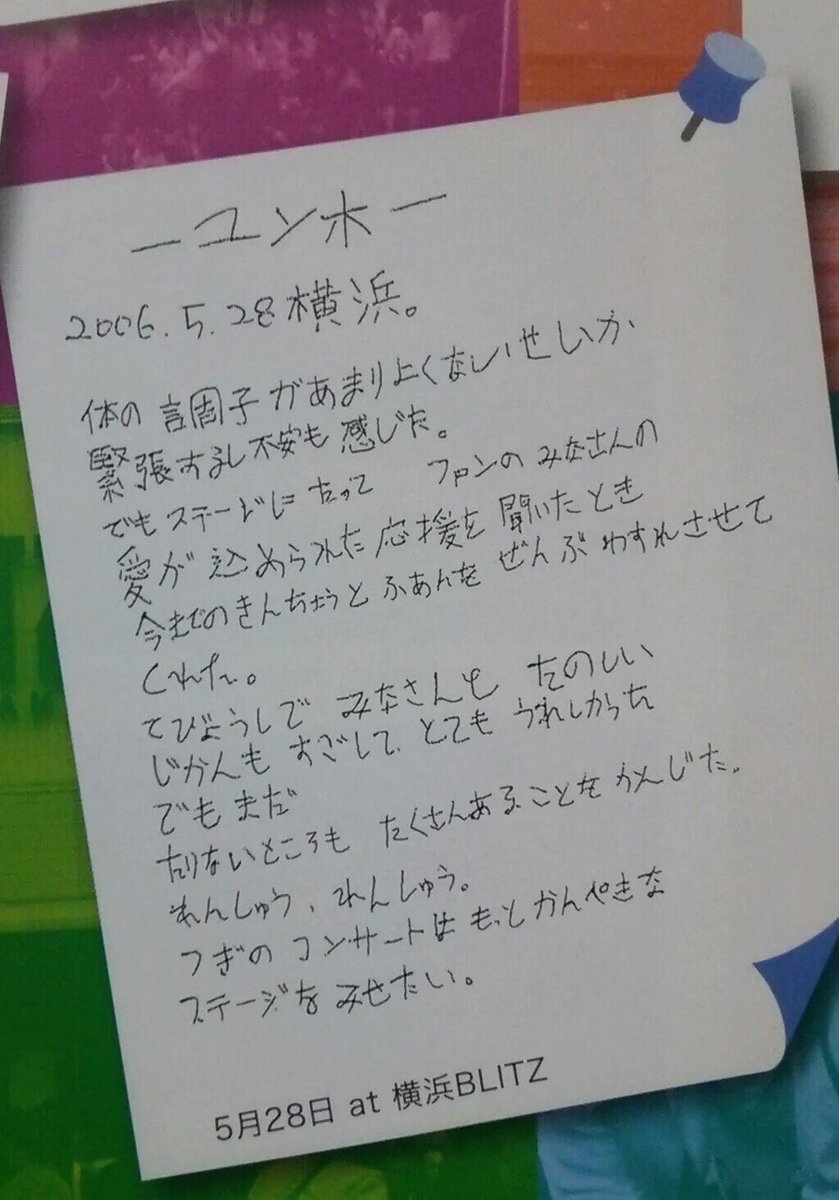 ーユンホー
2006.5.28横浜。
体の調子があまりよくないせいか
緊張するし不安も感じた。
でもステージにたって ファンのみなさんの
愛が込められた応援を聞いたとき
今までのきんちょうとふあんをぜんぶわすれさせて
くれた。
てびょうしでみなさんもたのしい
じかんもすごして、とてもうれしかった
でもまだ
たりないところもたくさんあることをかんじた。
れんしゅう、れんしゅう。
つぎのコンサートはもっとかんぺきな
ステージをみせたい。
5月28日 at 横浜BLITZ